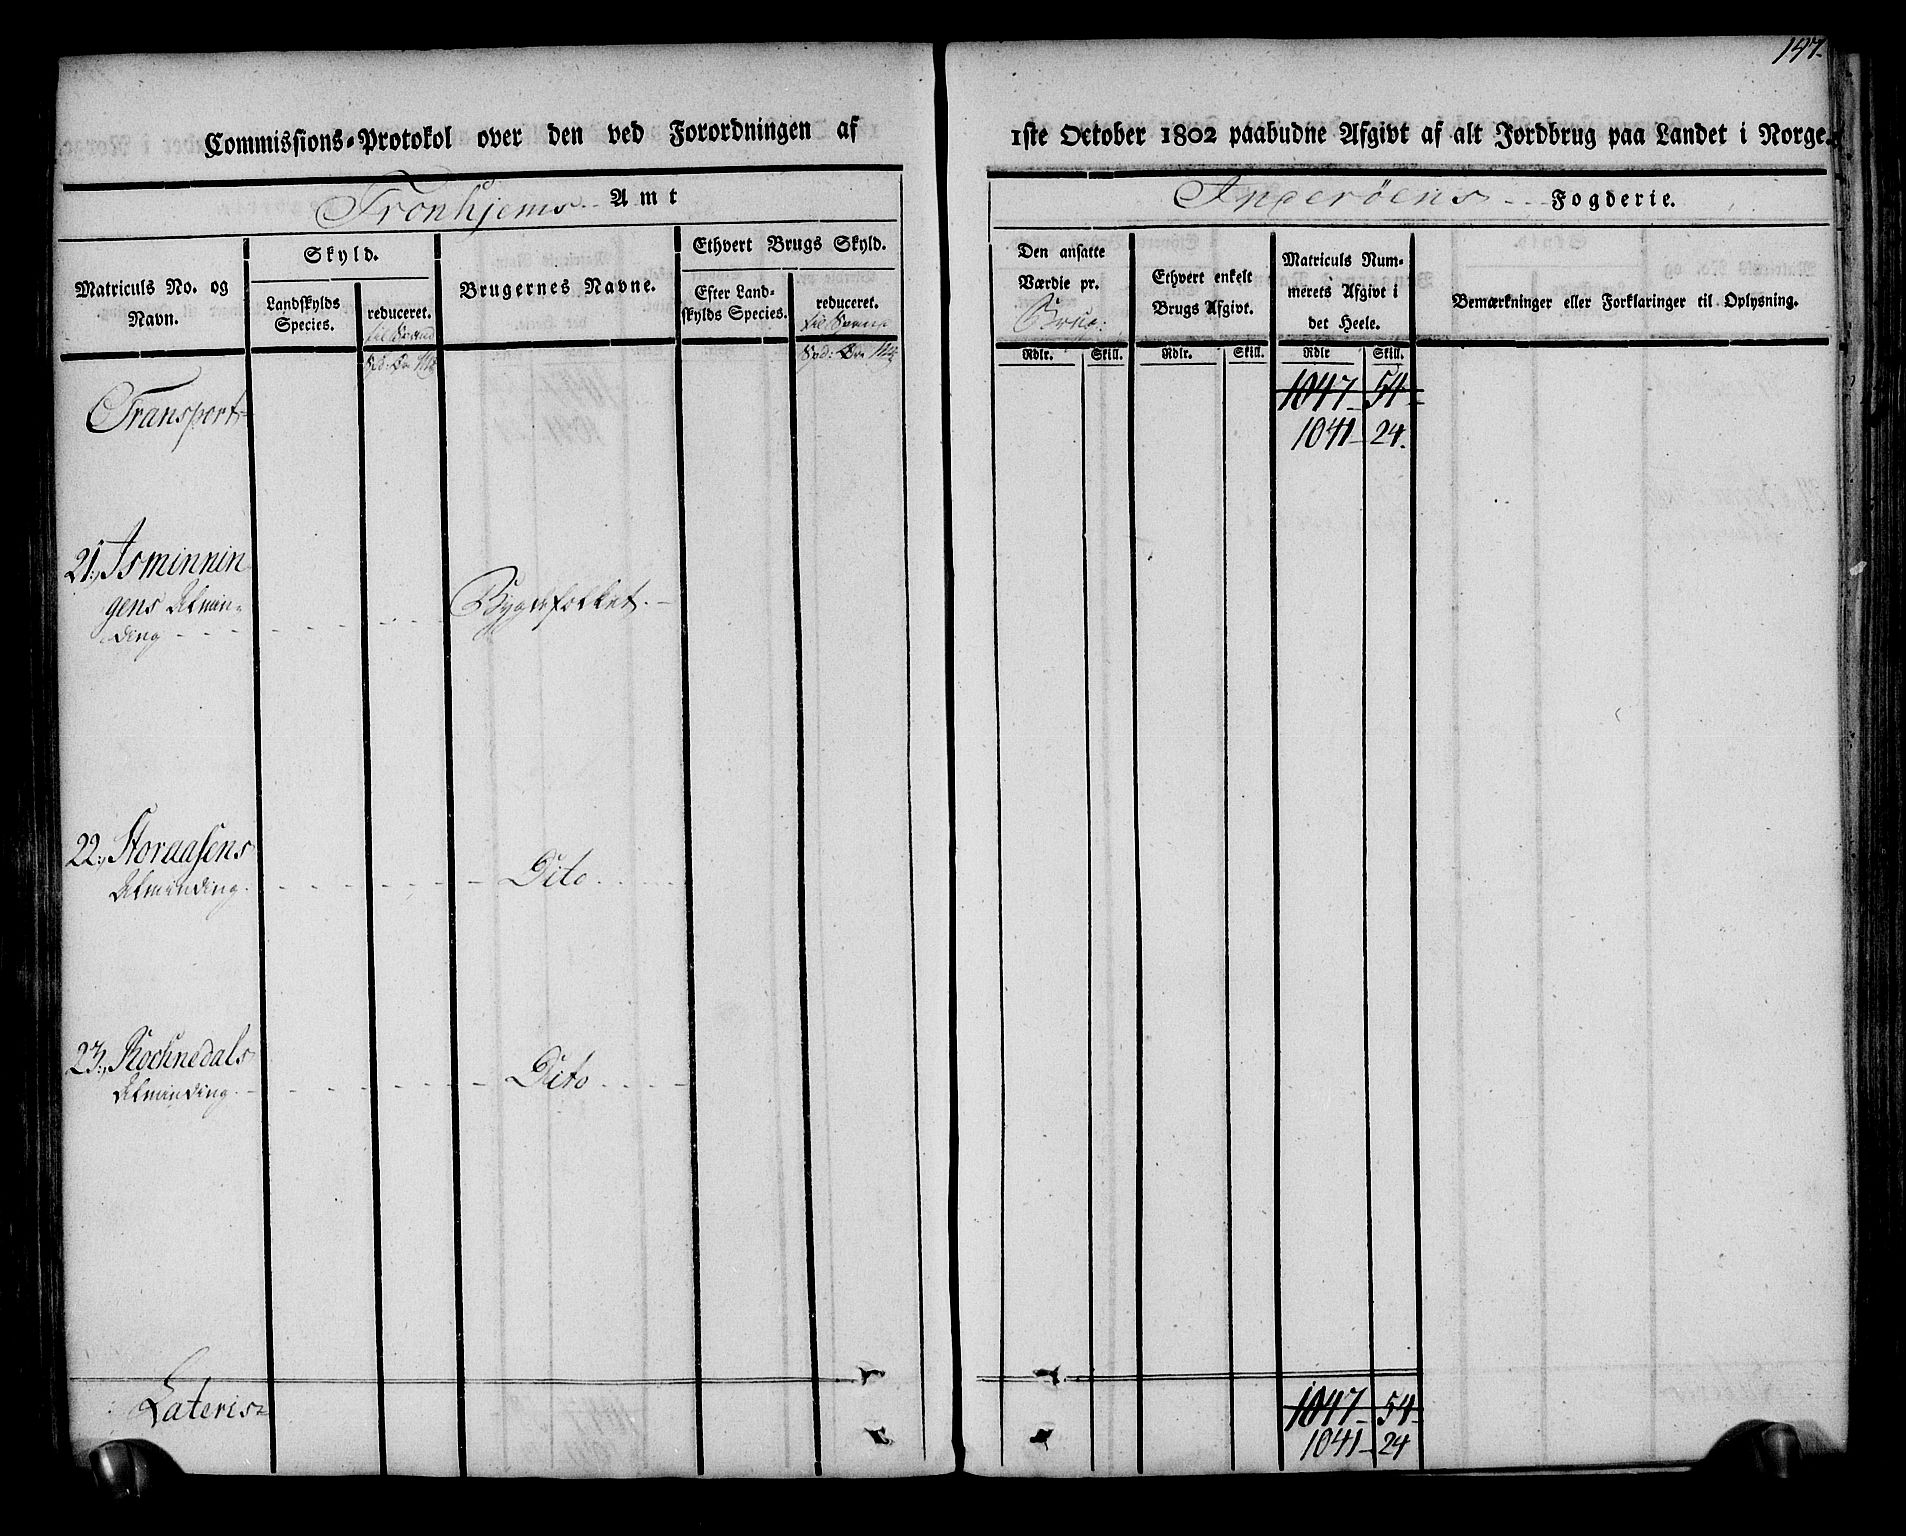 147.
Commissions-Protokol over den ved Forordningen af 1ste October 1802 paabudne Afgivt af alt Jordbrug paa Landet i Norge.
Tronhjems Amt
Inderöens Fogderie.
Matriculs No. og Navn.
Skyld.
Landskylds Species.
reduceret.
Brugernes Navne.
Ethvert Brugs Skyld.
Efter Landskylds Species.
reduceret.
Den ansatte Værdie pr.
Ethvert enkelt Brugs Afgivt.
Matriculs Nummerets Afgivt i det Heele.
Bemærkninger eller Forklaringer til Oplysning.
Rdlr. Skill. Rdlr. Skill. Rdlr Skill.
Transport 1047 54
1041 24.
21., Isminnin
gens Almin-
ding Bygdefolket.
22., Storaasens
Alminding. Dito
23., Rochnedals
Alminding. Dito
Lateris 1047 54
1041 24